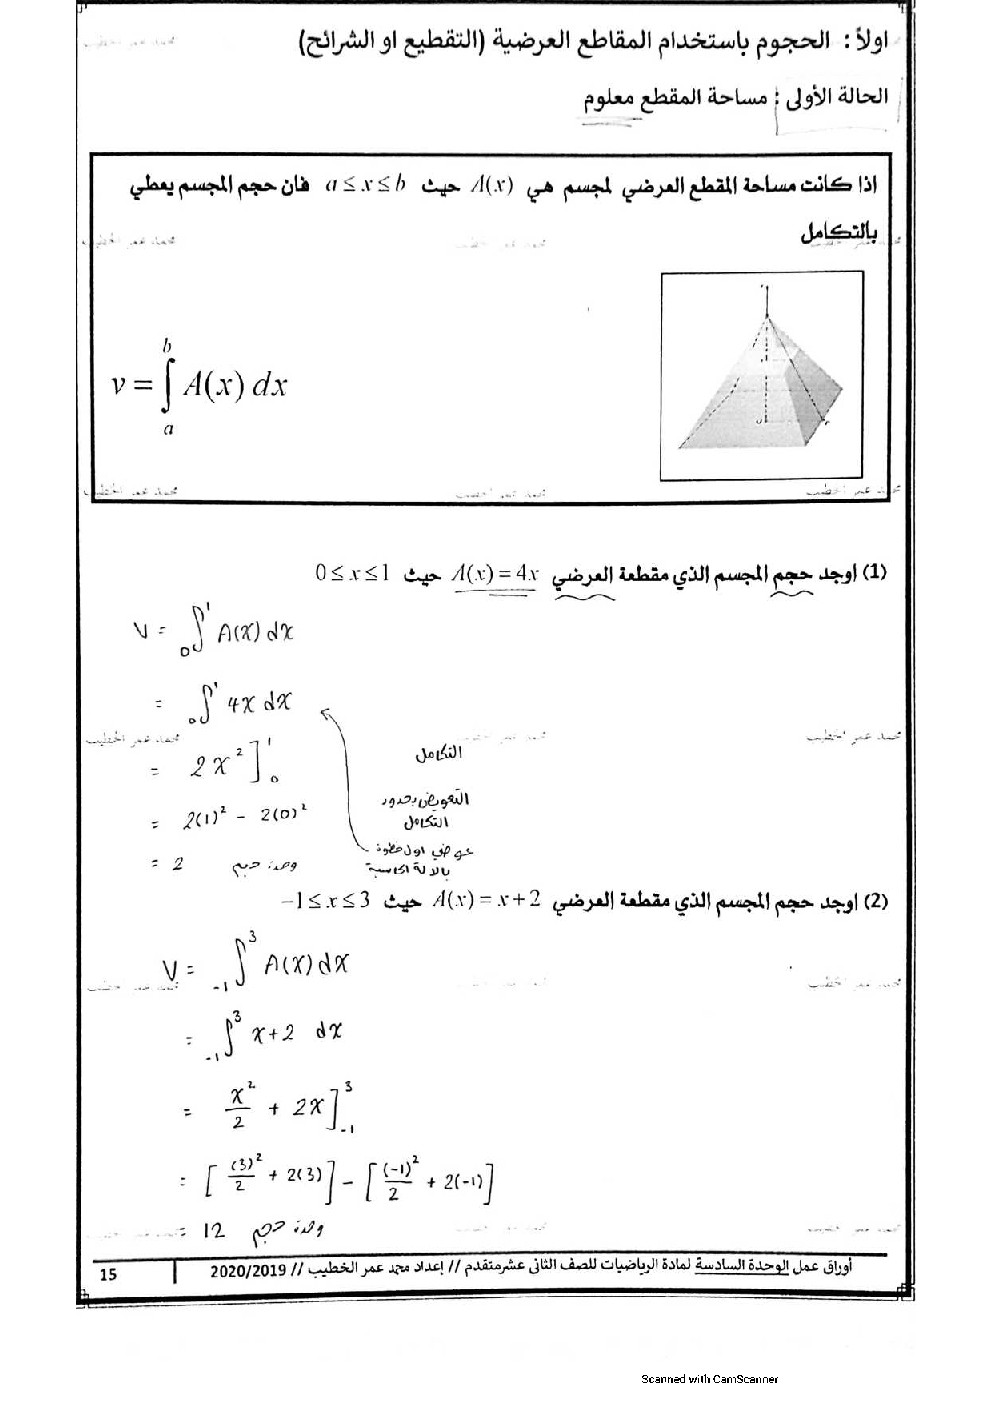 اولاً : الحجوم باستخدام المقاطع العرضية (التقطيع او الشرائح)
الحالة الأولى : مساحة المقطع معلوم
اذا كانت مساحة المقطع العرضي لمجسم هي A(x) حيث a ≤ x ≤ b فان حجم المجسم يعطي
بالتكامل
v = ∫_a^b A(x) dx
(1) اوجد حجم المجسم الذي مقطعة العرضي A(x) = 4x حيث 0 ≤ x ≤ 1
V = ₀∫¹ A(x) dx
= ₀∫¹ 4x dx
= 2x² ]₀¹
التكامل
التعويض بحدود
التكامل
= 2(1)² − 2(0)²
عوضي اول خطوة
بالالة الحاسبة
= 2 وحدة حجم
(2) اوجد حجم المجسم الذي مقطعة العرضي A(x) = x + 2 حيث −1 ≤ x ≤ 3
V = ₋₁∫³ A(x) dx
= ₋₁∫³ x+2 dx
= x²/2 + 2x ]₋₁³
= [ (3)²/2 + 2(3) ] − [ (-1)²/2 + 2(-1) ]
= 12 وحدة حجم
أوراق عمل الوحدة السادسة لمادة الرياضيات للصف الثاني عشر متقدم // إعداد محمد عمر الخطيب // 2020/2019
15
محمد عمر الخطيب
Scanned with CamScanner